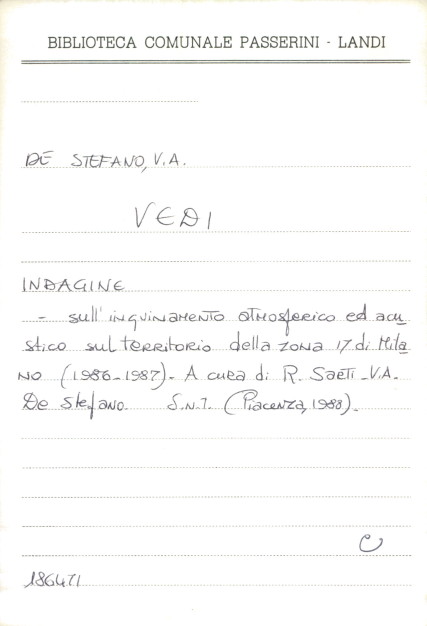 BIBLIOTECA COMUNALE PASSERINI - LANDI
DE STEFANO, V.A.
VEDI
INDAGINE
- sull'inquinamento atmosferico ed acu
stico sul territorio della zona 17 di Mila
no (1986-1987)- A cura di R. Saeti - V.A.
De Stefano. S.n.t. (Piacenza, 1988).
C
186471